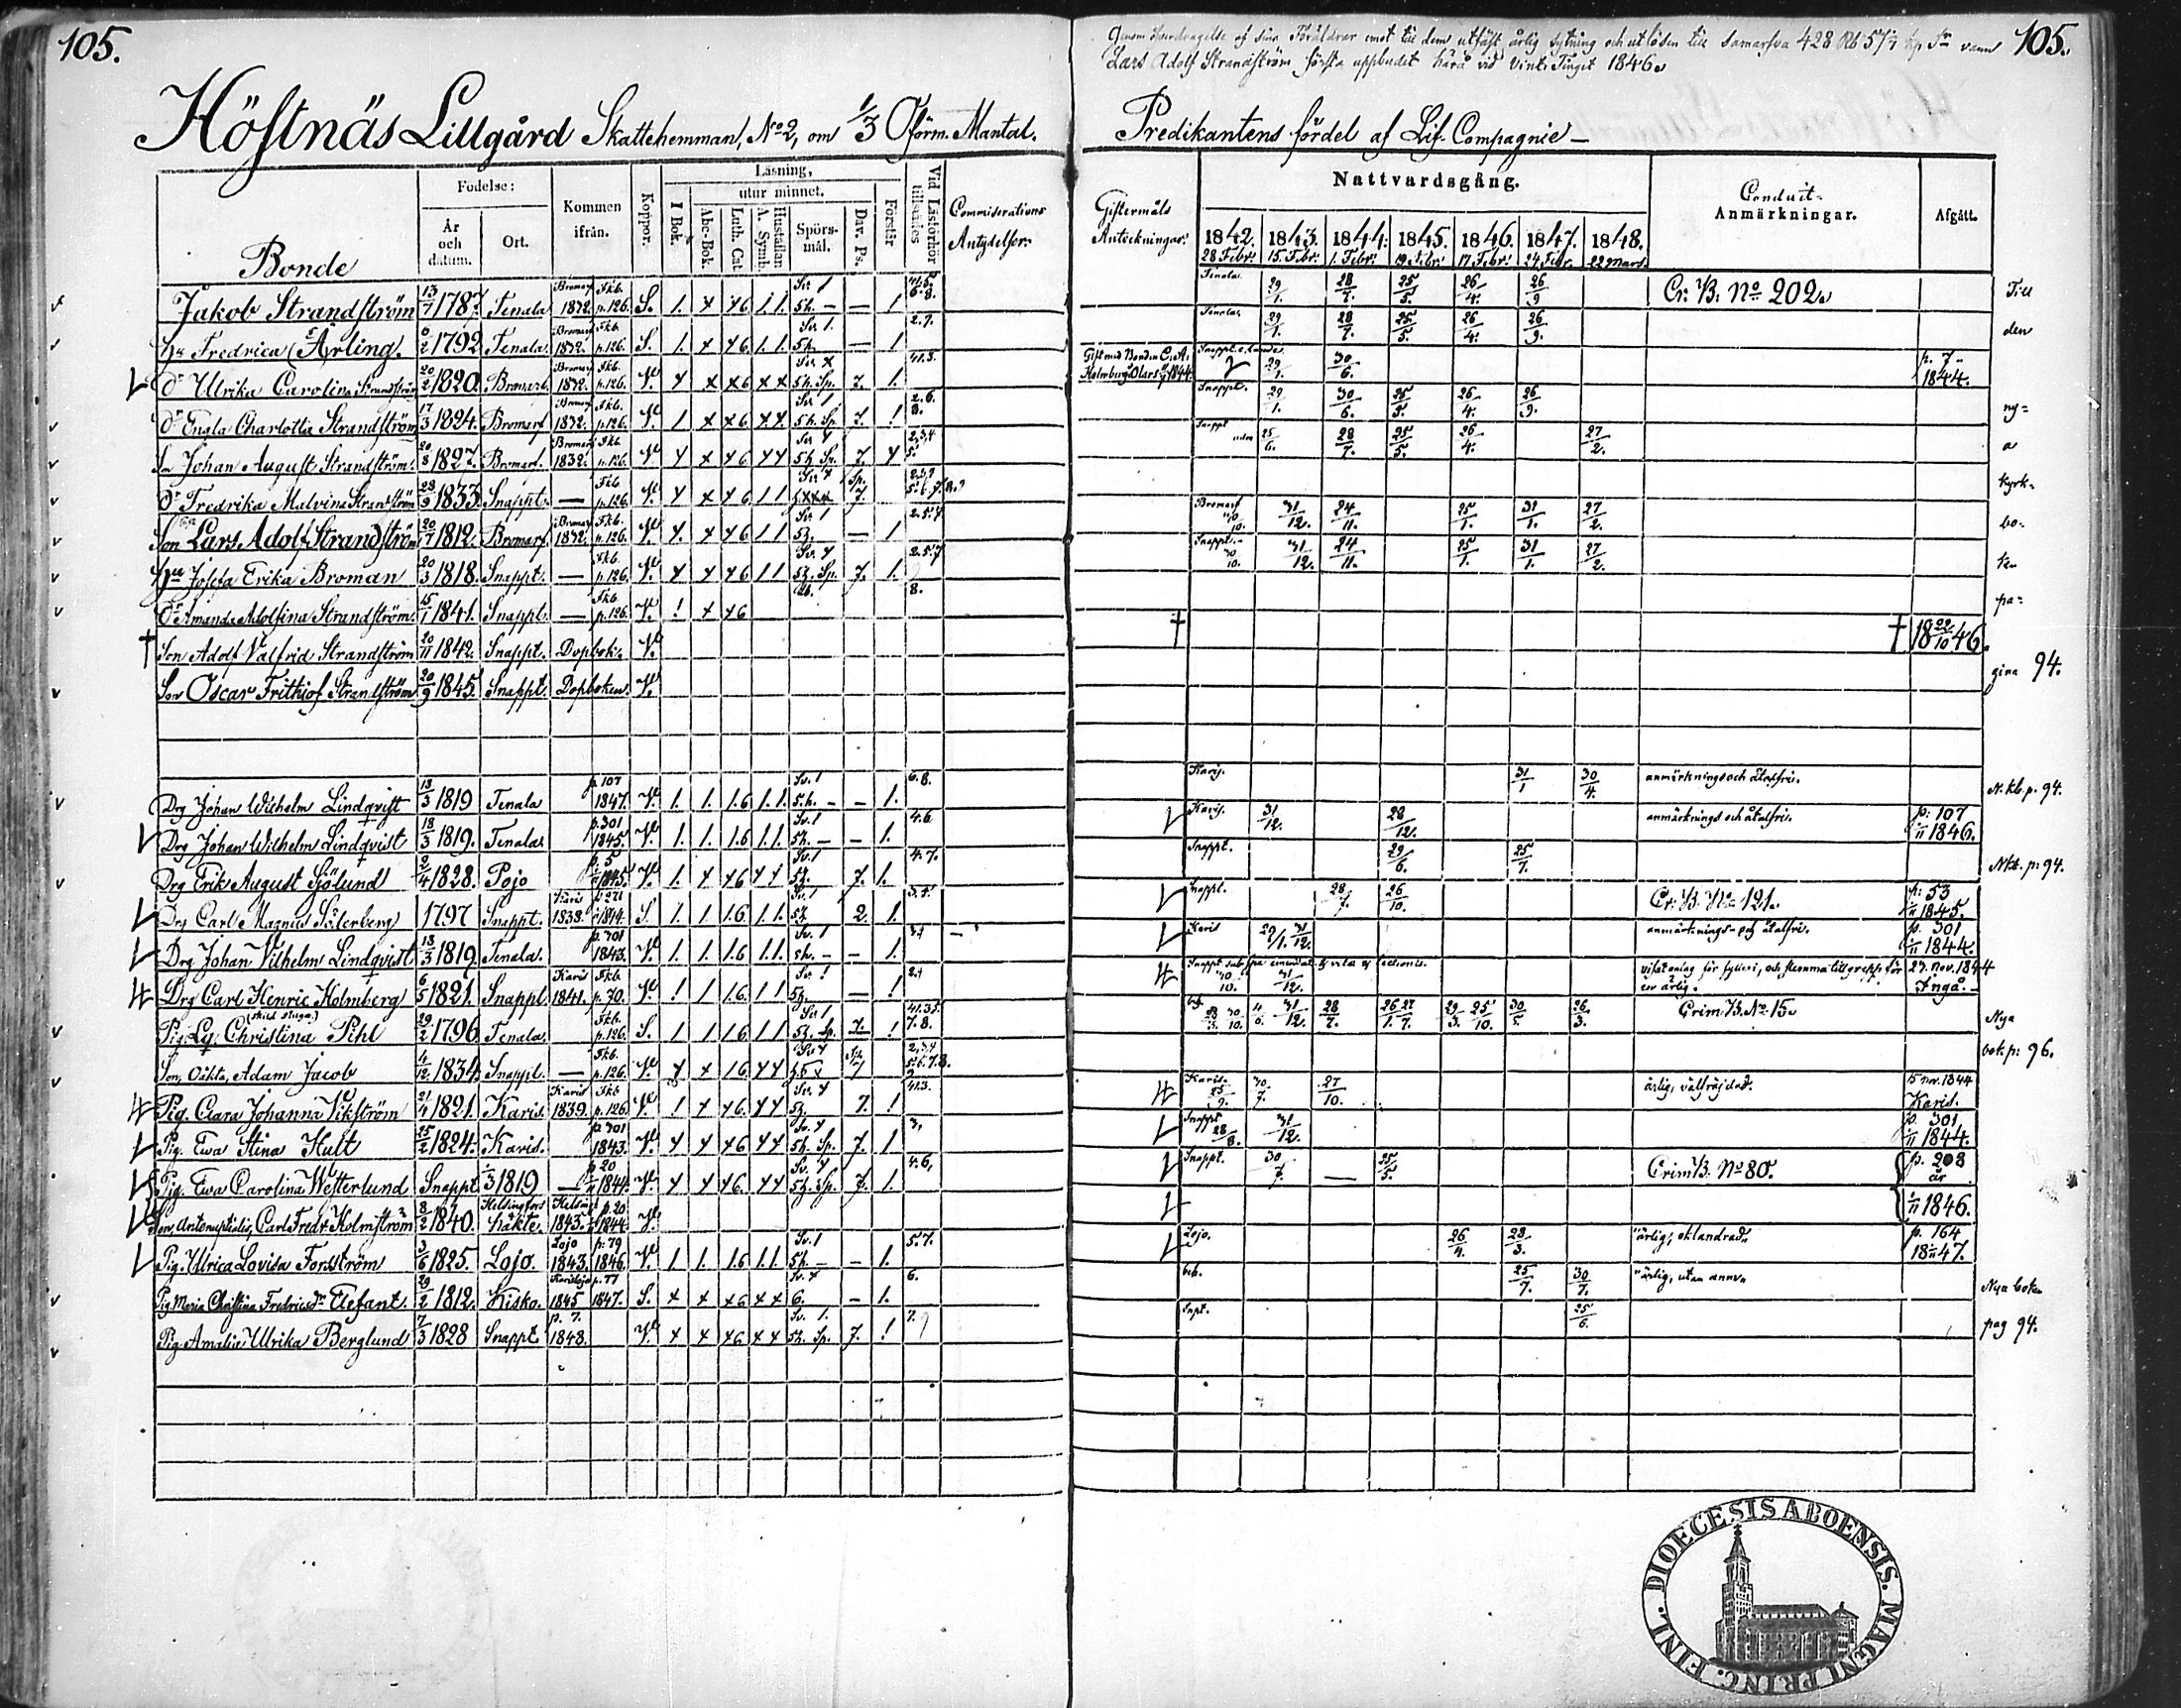 105.
Höstnäs Lillgård Skattehemman, No 2, om 1/3 Oförm. Mantal.
Födelse:
År och datum.
Ort.
Kommen ifrån.
Koppor.
Läsning,
I Bok.
utur minnet.
Abc-Bok.
Luth. Cat.
Hustaflan A. Symb.
Spörs-mål.
Dav. Ps.
Förstår
Vid Läsförhör tillstädes
Commiserations Antydelser.
Bonde
Jakob Strandström 13/7 1787. Tenala Bromarf 1832. Fkb. p. 126. S. 1. x x6 1.1. Sv. 1 5h. — — 1
Hu Fredrica Ärling. 6/2 1792 Tenala. Bromarf 1832. Fkb. p. 126. S. 1. x x6 1.1. Sv. 1. 5h. — 1 2.7.
Dr Ulrika Carolina Strandström 20/2 1820. Bromarf. Bromarf 1832. Fkb. p. 126. V. x x x6 x x Sv. x 5h. Sp. 7. 1. 41.3.
Dr Engla Charlotta Strandström 17/3 1824. Bromarf Bromarf 1832. Fkb. p. 126. V. 1 x x6 x x Sv. 1 5h. Sp. 7. 1 2.6. 8.
Sn Johan August Strandström. 20/8 1827. Bromarf. Bromarf 1832. Fkb. p. 126. V. x x x6 x x Sv. x 5h. Sp. 7. x 2,3,4 5.
Dr Fredrika Malvina Strandström 28/9 1833 Snappt. — Fkb. p. 126 V. x x x6 1 1 Sv. x Sp. 7.
Son Lars Adolf Strandström 20/7 1812. Bromarf. Bromarf 1832. Fkb. p. 126. V. x. x x6 1 1 Sv. 1 5h. — 1 2.5.7.
Hu Josefa Erika Broman 20/3 1818. Snappt. — Fkb. p. 126. V. x x x6 1 1 Sv. x 5h. Sp. 7. 1. 2.5.7
Dr Amanda Adolfina Strandström. 15/1 1841. Snappt. — Fkb. p. 126. V. 1 x x6 8.
† Son Adolf Valfrid Strandström 20/11 1842. Snappt. Dopbok. V.
Son Oscar Frithiof Strandström 20/9 1845. Snappt. Dopboken. V.
Drg Johan Wilhelm Lindqvist 13/3 1819 Tenala p. 107 1847. V. 1. 1. 1.6 1.1. Sv. 1 5.h. – – 1. 6.8.
Drg Johan Wilhelm Lindqvist 18/3 1819. Tenala p. 301 1845. V. 1. 1. 1.6 1.1. Sv. 1 5h. – – 1. 4.6
Drg Erik August Sjölund 2/4 1828. Pojo p. 5 1845. V. 1. x x6 x x Sv. 1 5h. 7. 1. 4.7.
Drg Carl Magnus Söderberg 1797 Snappt. Karis 1838. 1844. S. 1. 1 1.6 1.1. Sv. 1 5h 2. 1. 3.4.
Drg Johan Vilhelm Lindqvist 13/3 1819. Tenala. p. 301 1843. V. 1. 1. 1.6 1.1. Sv. 1 5h. – – 1. 3.4
Drg Carl Henric Holmberg 6/5 1821. Snappt. Karis 1841. Fkb. p. 70. V. 1 1 1.6. 1 1 Sv. 1 5h. — 1 2.4
Pig. Christina Pihl 29/2 1796. Tenala. Fkb. p. 126. S. 1 1 1.6 1 1 Sv. 1 5h. Sp. 7. 1 41.3.5. 7.8.
Son, Oäkta, Adam Jacob 4/12 1834. Snappt. — Fkb. p. 126. V. x x 1.6 x x Sv. x Sp. 7
Pig. Clara Johanna Vikström 21/4 1821. Karis. Karis 1839. Fkb. p. 126. V. 1 x x6. x x Sv. x 5h. 7. 1 41.3.
Pig. Ewa Stina Hult 25/2 1824. Karis. p. 301 1843. V. x x x6 x x Sv. x 5h. Sp. 7. 1 3,
Pig. Ewa Carolina Westerlund Snappt 1/3 1819 — p 20 1844. V. x x x6. x x Sv. x 5h. Sp. 7. 1. 4.6,
Son, antenuptialis, Carl Fredr Holmström 8/2 1840. Helsingfors häkte. Helsingf 1843. p. 20 1844. V.
Pig. Ulrica Lovisa Forsström 3/6 1825. Lojo. Lojo 1843. p. 79 1846. V. 1 1. 1.6 1.1. Sv. 1 5h. – – 1. 5.7.
Pig Maria Christina Fredricsdr Elefant. 29/2 1812. Kisko. Karislojo 1845 p. 77 1847. S. x x x6 x x Sv. x 6. – 1. 6.
Pig Amalia Ulrika Berglund 7/3 1828 Snappt p. 7. 1848. V. x x x6. x x Sv. 1. 5h. Sp. 7. 1 7.
Genom öfverdragelse af sina Föräldrar emot till dem utfäst årlig sytning och utlösen till 428 Rb 57 kp. Sr vann
Lars Adolf Strandström första uppbudet härå vid Vint. Tinget 1846.
105.
Predikantens fördel af Lif-Compagnie —
Giftermåls Anteckningar.
Nattvardsgång.
1842. 28 Febr.
1843. 15. Febr.
1844. 1. Febr.
1845. 19 Febr.
1846. 17 Febr.
1847. 24 Febr.
1848. 22 Mars.
Conduit-Anmärkningar.
Afgått.
Tenala. 29/1. 28/7. 25/5. 26/4. 26/9 Cr. B. No 202. Till
Tenala. 29/1. 28/7. 25/5. 26/4. 26/9. den
Gift med Bonden C. A. Holmberg 1844. 29/1. 30/6. p. 7 1844.
Snappt. 29/1. 30/6. 25/5. 26/4. 26/9. ny=
Snappt 25/6. 28/7. 25/5. 26/4. 27/2. a
kyrk-
Bromarf 30/10. 31/12. 24/11. 25/1. 31/1. 27/2. bo-
Snappt. 30/10. 31/12. 24/11. 25/1. 31/1. 27/2. ken
pa=
† † 18 22/10 46.
gina 94.
Karis. 31/1 30/4. anmärknings och åtalfri. N. kb. p. 94.
Karis. 31/12. 28/12. anmärknings och åtalfri. p. 107 1/11 1846.
Snappt. 29/6. 25/7. Nkb. p. 94.
Snappt. 28/7. 26/10. Cr. B. No 121. p. 53 1/11 1845.
Karis 29/1. 31/12. anmärknings- och åtalfri. p. 301 1/11 1844.
Snappt 30/10. 31/12. för fylleri, och för är ärlig. 27. nov. 1844 Ingå.
28/7. 26/1. 27/7. 29/3. 25/10. 30/5. 26/3. Crim. B. No 15. Nya
bok. p. 96.
Karis. 25/9. 30/7. 27/10. ärlig, välfrejdad. 15 nov. 1844 Karis.
Snappt 28/8. 31/12. p. 301 1/11 1844.
Snappt. 30/7. — 25/5. Crim B. No 80. p. 208 är
1/11 1846.
Lojo. 26/4. 28/3. "ärlig, oklandrad" p. 164 18 1/11 47.
25/7. 30/7. "ärlig, utan anm" Nya boken
Snpt. 25/6. pag 94.
DIOECESIS ABOENSIS. MAGNI PRINC. FINL.